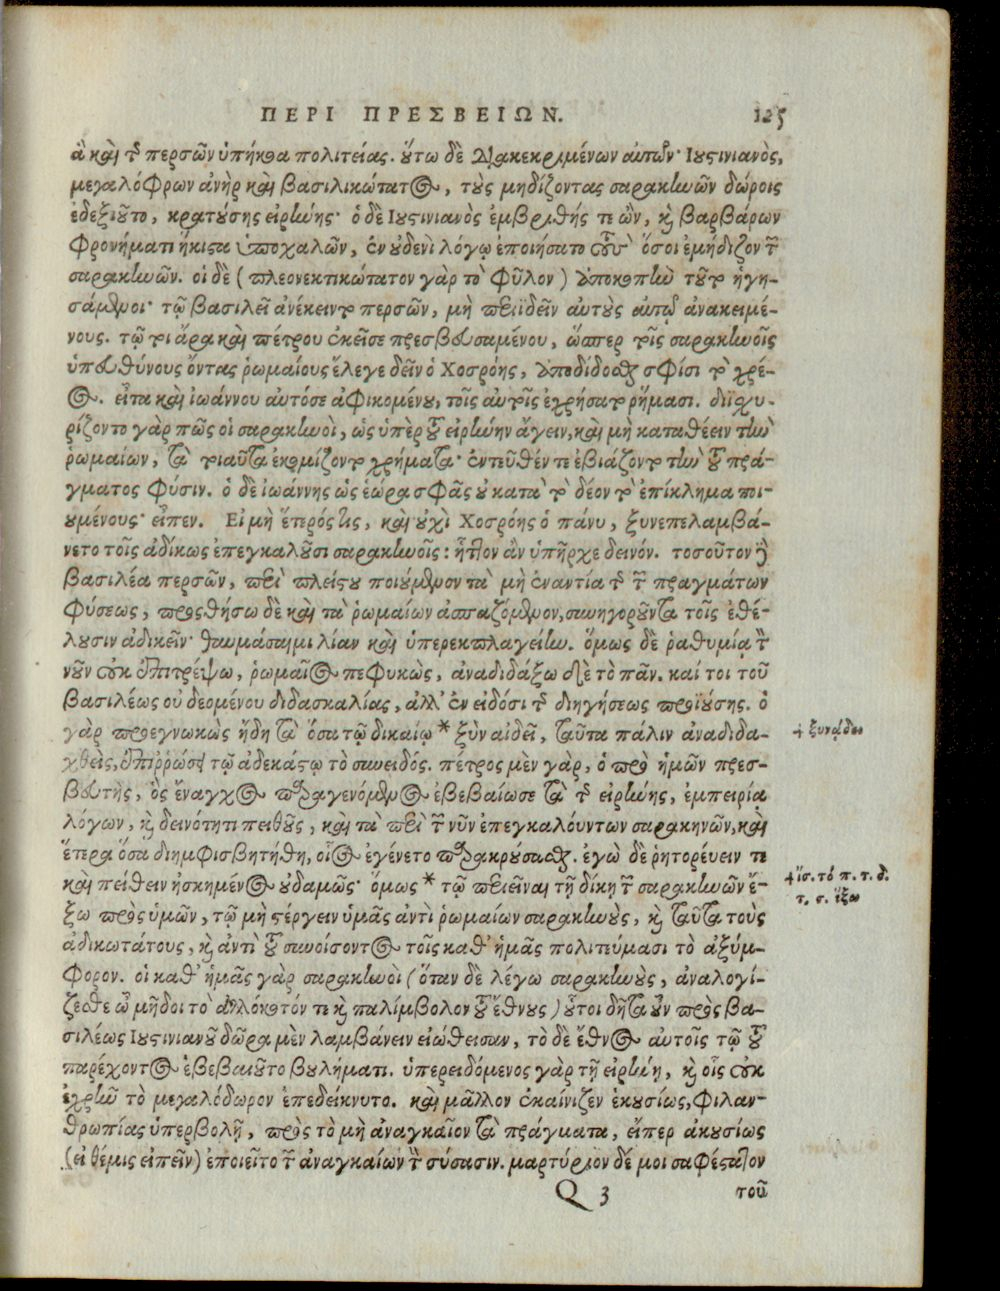 ΠΕΡΙ ΠΡΕΣΒΕΙΩΝ. 125
ἃ καὶ τῆς περσῶν ὑπήκοα πολιτείας. οὕτω δὲ διακεκριμένων αὐτῶν· Ἰουστινιανὸς,
μεγαλόφρων ἀνὴρ καὶ βασιλικώτατος, τοὺς μηδίζοντας σαρακηνῶν δώροις
ἐδεξιοῦτο, κρατούσης εἰρήνης· ὁ δὲ Ἰουστινιανὸς ἐμβριθής τε ὢν, καὶ βαρβάρων
φρονήματι ἥκιστα ὑποχαλῶν, ἐν οὐδενὶ λόγῳ ἐποιήσατο τοὺς ὅσοι ἐμήδιζον τῶν
σαρακηνῶν. οἱ δὲ (πλεονεκτικώτατον γὰρ τὸ φῦλον) ἀποκοπὴν τοῦτο ἡγη-
σάμενοι· τῷ βασιλεῖ ἀνέκειντο περσῶν, μὴ περιϊδεῖν αὐτοὺς αὐτῷ ἀνακειμέ-
νους. τῷ τοι ἄρα καὶ πέτρου ἐκεῖσε πρεσβευσαμένου, ὥσπερ τοῖς σαρακηνοῖς
ὑπευθύνους ὄντας ῥωμαίους ἔλεγε δεῖν ὁ Χοσρόης, ἀποδίδοσθαι σφίσι τὸ χρέ-
ος. εἶτα καὶ ἰωάννου αὐτόσε ἀφικομένου, τοῖς αὐτοῖς ἐχρήσατο ῥήμασι. διϊσχυ-
ρίζοντο γὰρ πῶς οἱ σαρακηνοὶ, ὡς ὑπὲρ τοῦ εἰρήνην ἄγειν, καὶ μὴ καταθέειν τὴν
ῥωμαίων, τὰ τοιαῦτα ἐκομίζοντο χρήματα· ἐντεῦθέν τε ἐβιάζοντο τὴν τοῦ πρά-
γματος φύσιν. ὁ δὲ ἰωάννης ὡς ἑώρα σφᾶς οὐ κατὰ τὸ δέον τὸ ἐπίκλημα ποι-
ουμένους· εἶπεν. Εἰ μὴ ἕτερός τις, καὶ οὐχὶ Χοσρόης ὁ πάνυ, ξυνεπελαμβά-
νετο τοῖς ἀδίκως ἐπεγκαλοῦσι σαρακηνοῖς: ἧττον ἂν ὑπῆρχε δεινόν. τοσοῦτον δὲ
βασιλέα περσῶν, περὶ πλείστου ποιούμενον τὰ μὴ ἐναντία τῆς τῶν πραγμάτων
φύσεως, προσθήσω δὲ καὶ τὰ ῥωμαίων ἀσπαζόμενον, συνηγοροῦντα τοῖς ἐθέ-
λουσιν ἀδικεῖν· θαυμάσαιμι λίαν καὶ ὑπερεκπλαγείην. ὅμως δὲ ῥαθυμίᾳ τὸ
νῦν οὐκ ἐπιτρέψω, ῥωμαῖος πεφυκὼς, ἀναδιδάξω δέ σε τὸ πᾶν. καί τοι τοῦ
βασιλέως οὐ δεομένου διδασκαλίας, ἀλλ’ ἐν εἰδόσι τῆς διηγήσεως προϊούσης. ὁ
γὰρ προεγνωκὼς ἤδη τὰ ὅσα τῷ δικαίῳ * ξὺν αἰδεῖ, ταῦτα πάλιν ἀναδιδα-
χθεὶς, ἐπιρρώσει τῷ ἀδεκάστῳ τὸ συνειδός. πέτρος μὲν γὰρ, ὁ πρὸ ἡμῶν πρεσ-
βευτὴς, ὃς ἔναγχος παραγενόμενος ἐβεβαίωσε τὰ τῆς εἰρήνης, ἐμπειρίᾳ
λόγων, καὶ δεινότητι πειθοῦς, καὶ τὰ περὶ τῶν νῦν ἐπεγκαλούντων σαρακηνῶν, καὶ
ἕτερα ὅσα διημφισβητήθη, οἷος ἐγένετο παρακρούσασθαι. ἐγὼ δὲ ῥητορεύειν τε
καὶ πείθειν ἠσκημένος οὐδαμῶς· ὅμως * τῷ περιεῖναι τῇ δίκῃ τῶν σαρακηνῶν ἕ-
ξω πρὸς ὑμῶν, τῷ μὴ στέργειν ὑμᾶς ἀντὶ ῥωμαίων σαρακηνοὺς, καὶ ταῦτα τοὺς
ἀδικωτάτους, καὶ ἀντὶ τοῦ συνοίσοντος τοῖς καθ’ ἡμᾶς πολιτεύμασι τὸ ἀξύμ-
φορον. οἱ καθ’ ἡμᾶς γὰρ σαρακηνοὶ (ὅταν δὲ λέγω σαρακηνοὺς, ἀναλογί-
ζεσθε ὦ μῆδοι τὸ ἀλλόκοτόν τε καὶ παλίμβολον τοῦ ἔθνους) οὗτοι δῆτα οὖν πρὸς βα-
σιλέως Ἰουστινιανοῦ δῶρα μὲν λαμβάνειν εἰώθεισαν, τὸ δὲ ἔθνος αὐτοῖς τῷ τοῦ
παρέχοντος ἐβεβαιοῦτο βουλήματι. ὑπερειδόμενος γὰρ τῇ εἰρήνῃ, καὶ οἷς οὐκ
ἐχρῆν τὸ μεγαλόδωρον ἐπεδείκνυτο. καὶ μᾶλλον ἐκαίνιζεν ἑκουσίως, φιλαν-
θρωπίας ὑπερβολῇ, πρὸς τὸ μὴ ἀναγκαῖον τὰ πράγματα, εἴπερ ἀκουσίως
(εἰ θέμις εἰπεῖν) ἐποιεῖτο τῶν ἀναγκαίων τὴν σύστασιν. μαρτύριον δέ μοι σαφέστατον
Q 3 τοῦ
ξυνᾴδει
ἴσ. τό π. τ. δ.
τ. σ. ἥξω